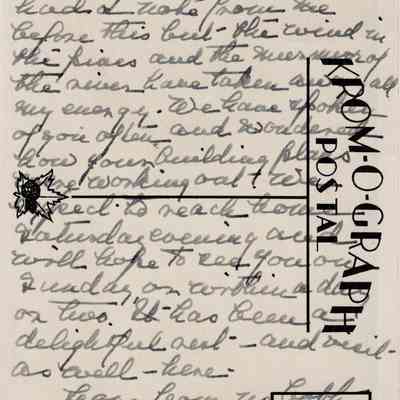 had a note from me
before this but the wind in
the pines and the murmur of
the river have taken away all
my energy. We have spoken
of you often and wondered
how your building plans
were working out! We
expect to reach home
Saturday evening and
will hope to see you on
Sunday, or within a day
or two. It has been a
delightful rest - and visit -
as well - here.
KROM-O-GRAPH
POSTAL